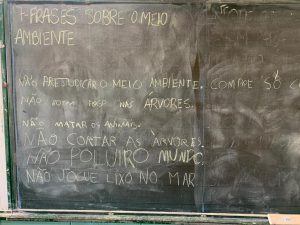 7 FRASES SOBRE O MEIO
AMBIENTE
NÃO PREJUDICAR O MEIO AMBIENTE. COMPRE SÓ O
NÃO NAS ÁRVORES.
NÃO MATAR OS ANIMAIS.
NÃO CORTAR AS ÁRVORES.
NÃO POLUIR O MUNDO.
NÃO JOGUE LIXO NO MAR